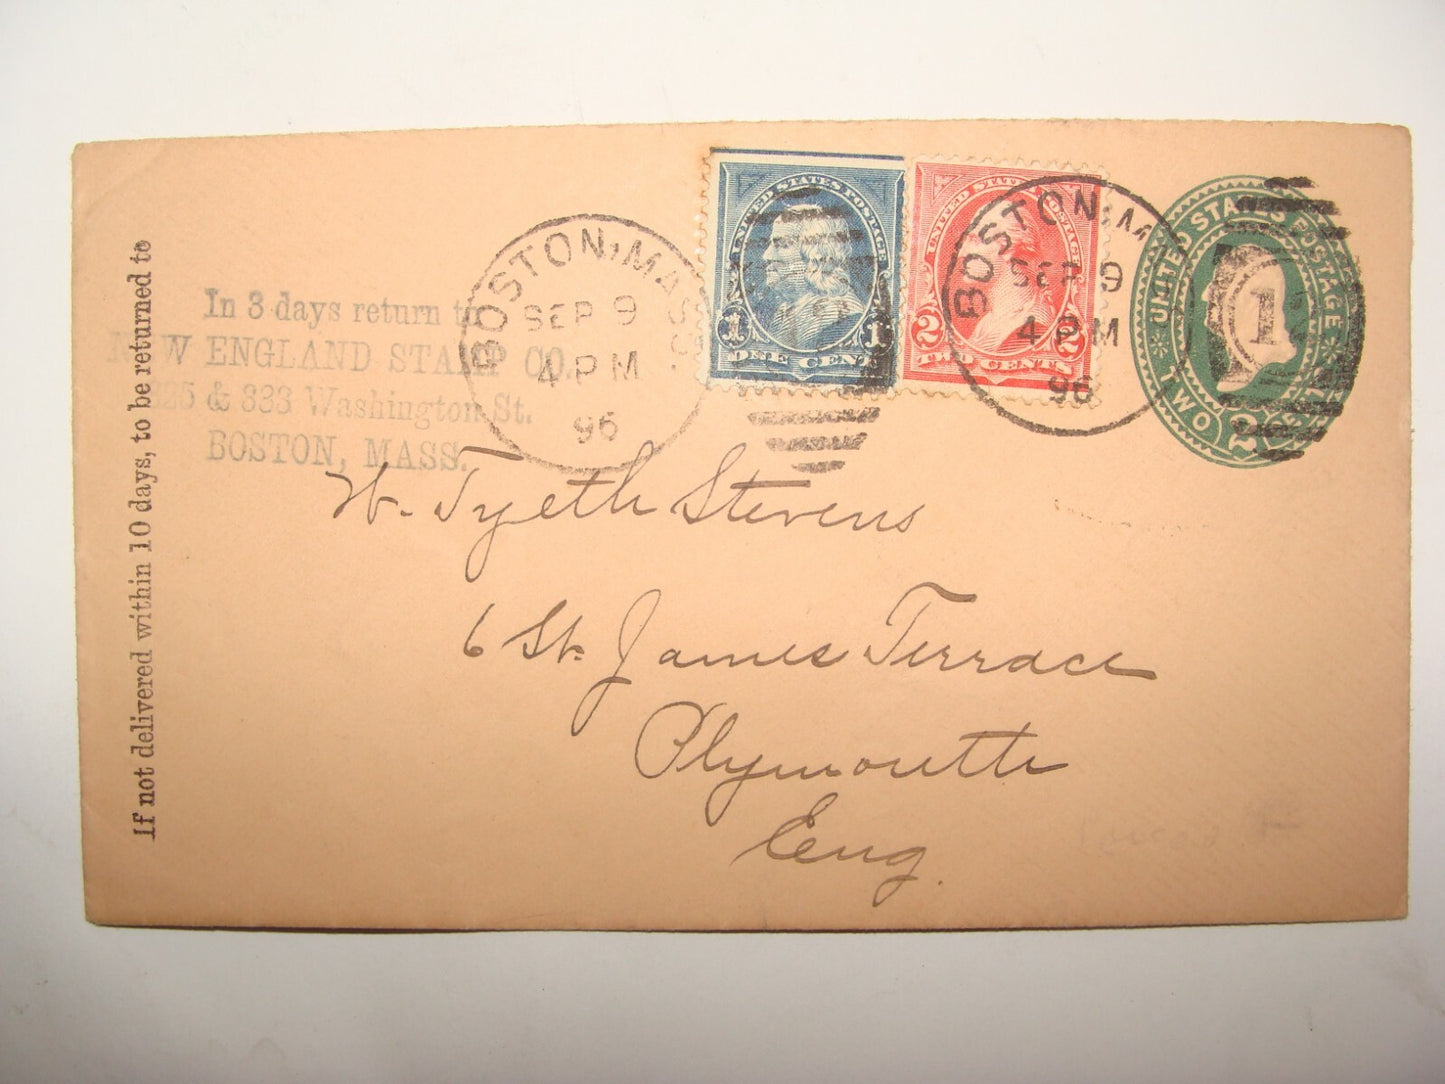 If not delivered within 10 days, to be returned to
In 3 days return to
NEW ENGLAND STAMP CO.
& 333 Washington St.
BOSTON, MASS.
BOSTON, MASS.
SEP 9
4 PM
96
UNITED STATES POSTAGE
1 1
ONE CENT
UNITED STATES POSTAGE
2 2
TWO CENTS
BOSTON, M
SEP 9
4 PM
96
UNITED STATES POSTAGE
TWO
2
1
W. Tyeth Stevens
6 St. James Terrace
Plymouth
Eng.